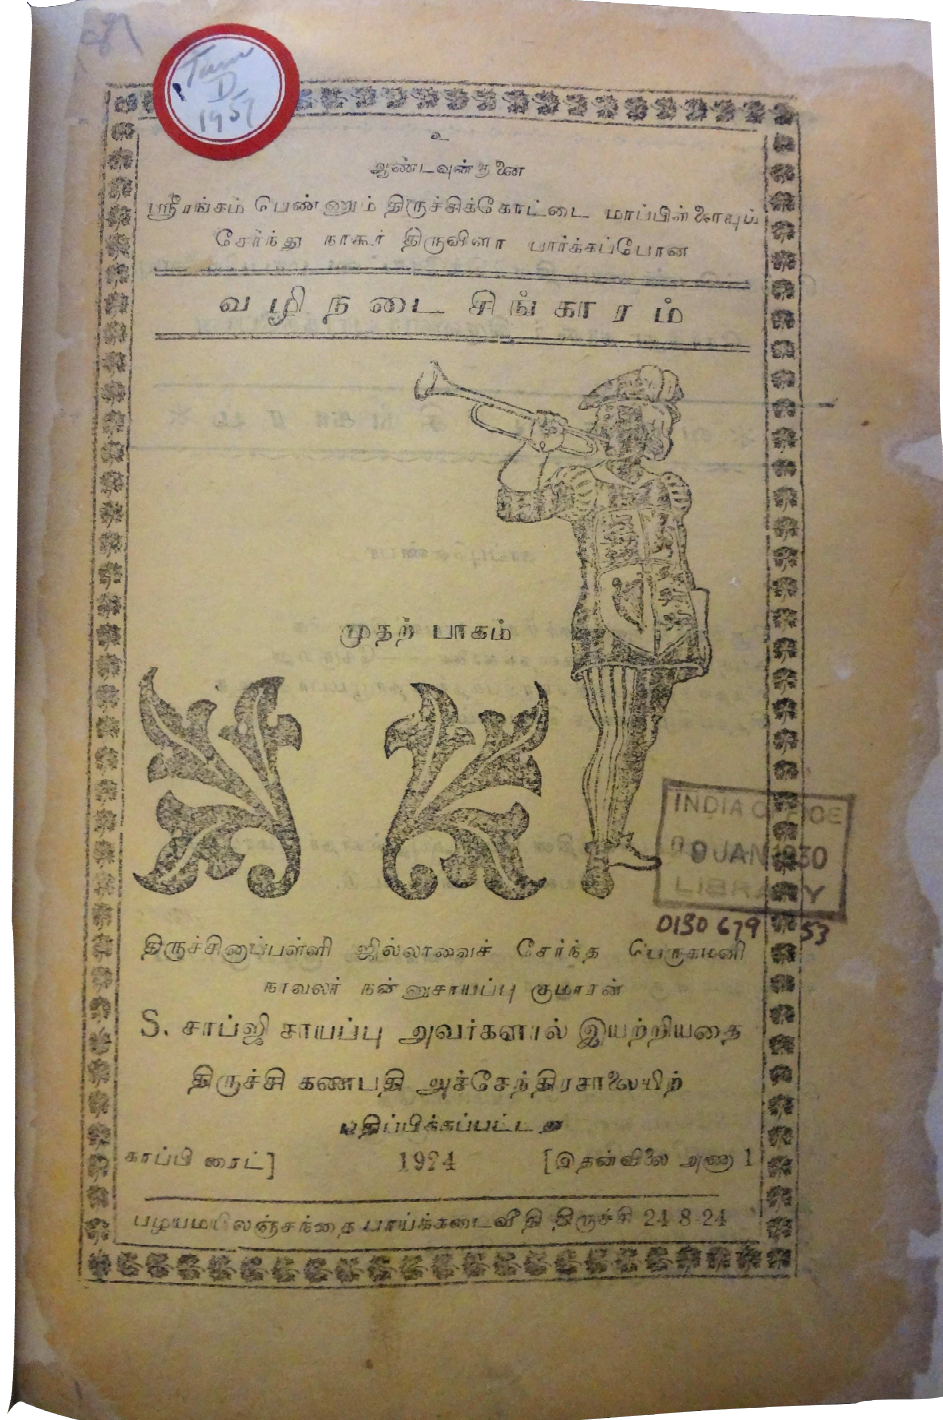 Tam
D.
1957
உ
ஆண்டவன் துணை
ஸ்ரீரங்கம் பெண்ணும் திருச்சிக்கோட்டை மாப்பிள்ளையுஞ்
சேர்ந்து நாகூர் திருவிளா பார்க்கப்போன
வழிநடைசிங்காரம்
முதற் பாகம்
INDIA OFFICE
09 JAN 1930
LIBRARY
திருச்சினாப்பள்ளி ஜில்லாவைச் சேர்ந்த பெருகமணி
நாவலர் நன்னுசாயப்பு குமாரன்
S. சாப்ஜி சாயப்பு அவர்களால் இயற்றியதை
திருச்சி கணபதி அச்சேந்திரசாலையிற்
பதிப்பிக்கப்பட்டது
காப்பி ரைட்] 1924 [இதன்விலை அணா 1
பழயமயிலஞ்சந்தை பாய்க்கடைவீதி திருச்சி 24-8-24